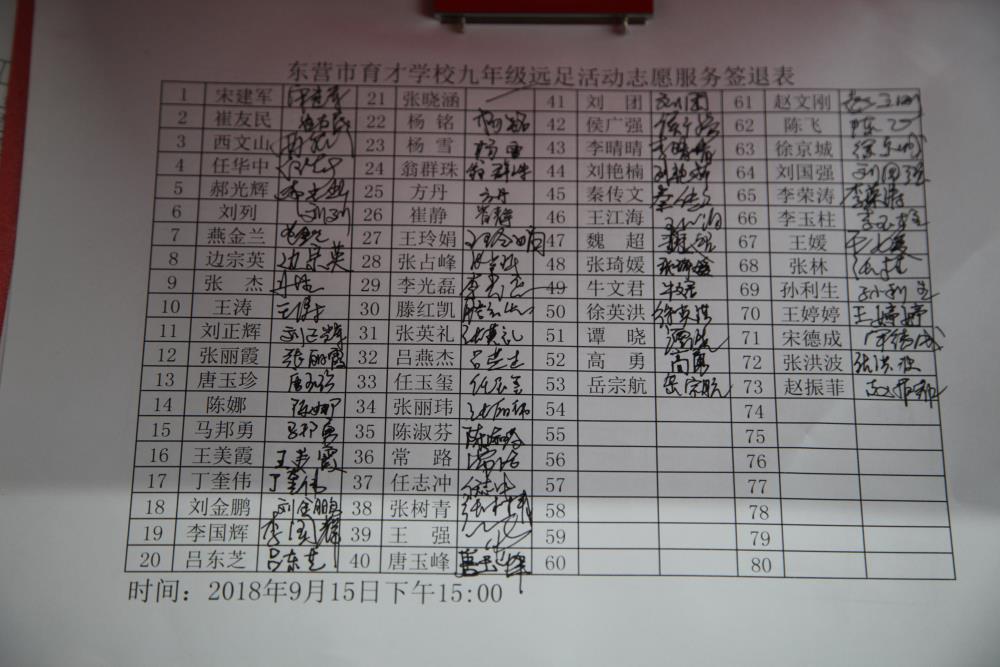 东营市育才学校九年级远足活动志愿服务签退表
1 宋建军 21 张晓涵 41 刘 团 刘团 61 赵文刚
2 崔友民 22 杨 铭 杨铭 42 侯广强 62 陈飞 陈飞
3 西文山 23 杨 雪 杨雪 43 李晴晴 李晴晴 63 徐京城
4 任华中 24 翁群珠 翁群珠 44 刘艳楠 刘艳楠 64 刘国强 刘国强
5 郝光辉 25 方丹 方丹 45 秦传文 65 李荣涛 李荣涛
6 刘列 刘列 26 崔静 崔静 46 王江海 66 李玉柱 李玉柱
7 燕金兰 27 王玲娟 47 魏 超 魏超 67 王媛
8 边宗英 边宗英 28 张占峰 48 张琦媛 张琦媛 68 张林 张林
9 张 杰 29 李光磊 49 牛文君 69 孙利生 孙利生
10 王涛 30 滕红凯 50 徐英洪 徐英洪 70 王婷婷 王婷婷
11 刘正辉 刘正辉 31 张英礼 51 谭 晓 71 宋德成
12 张丽霞 张丽霞 32 吕燕杰 52 高 勇 高勇 72 张洪波 张洪波
13 唐玉珍 33 任玉玺 53 岳宗航 岳宗航 73 赵振菲
14 陈娜 陈娜 34 张丽玮 54 74
15 马邦勇 马邦勇 35 陈淑芬 陈淑芬 55 75
16 王美霞 王美霞 36 常 路 常路 56 76
17 丁奎伟 丁奎伟 37 任志冲 57 77
18 刘金鹏 刘金鹏 38 张树青 58 78
19 李国辉 李国辉 39 王 强 59 79
20 吕东芝 吕东芝 40 唐玉峰 60 80
时间：2018年9月15日下午15:00